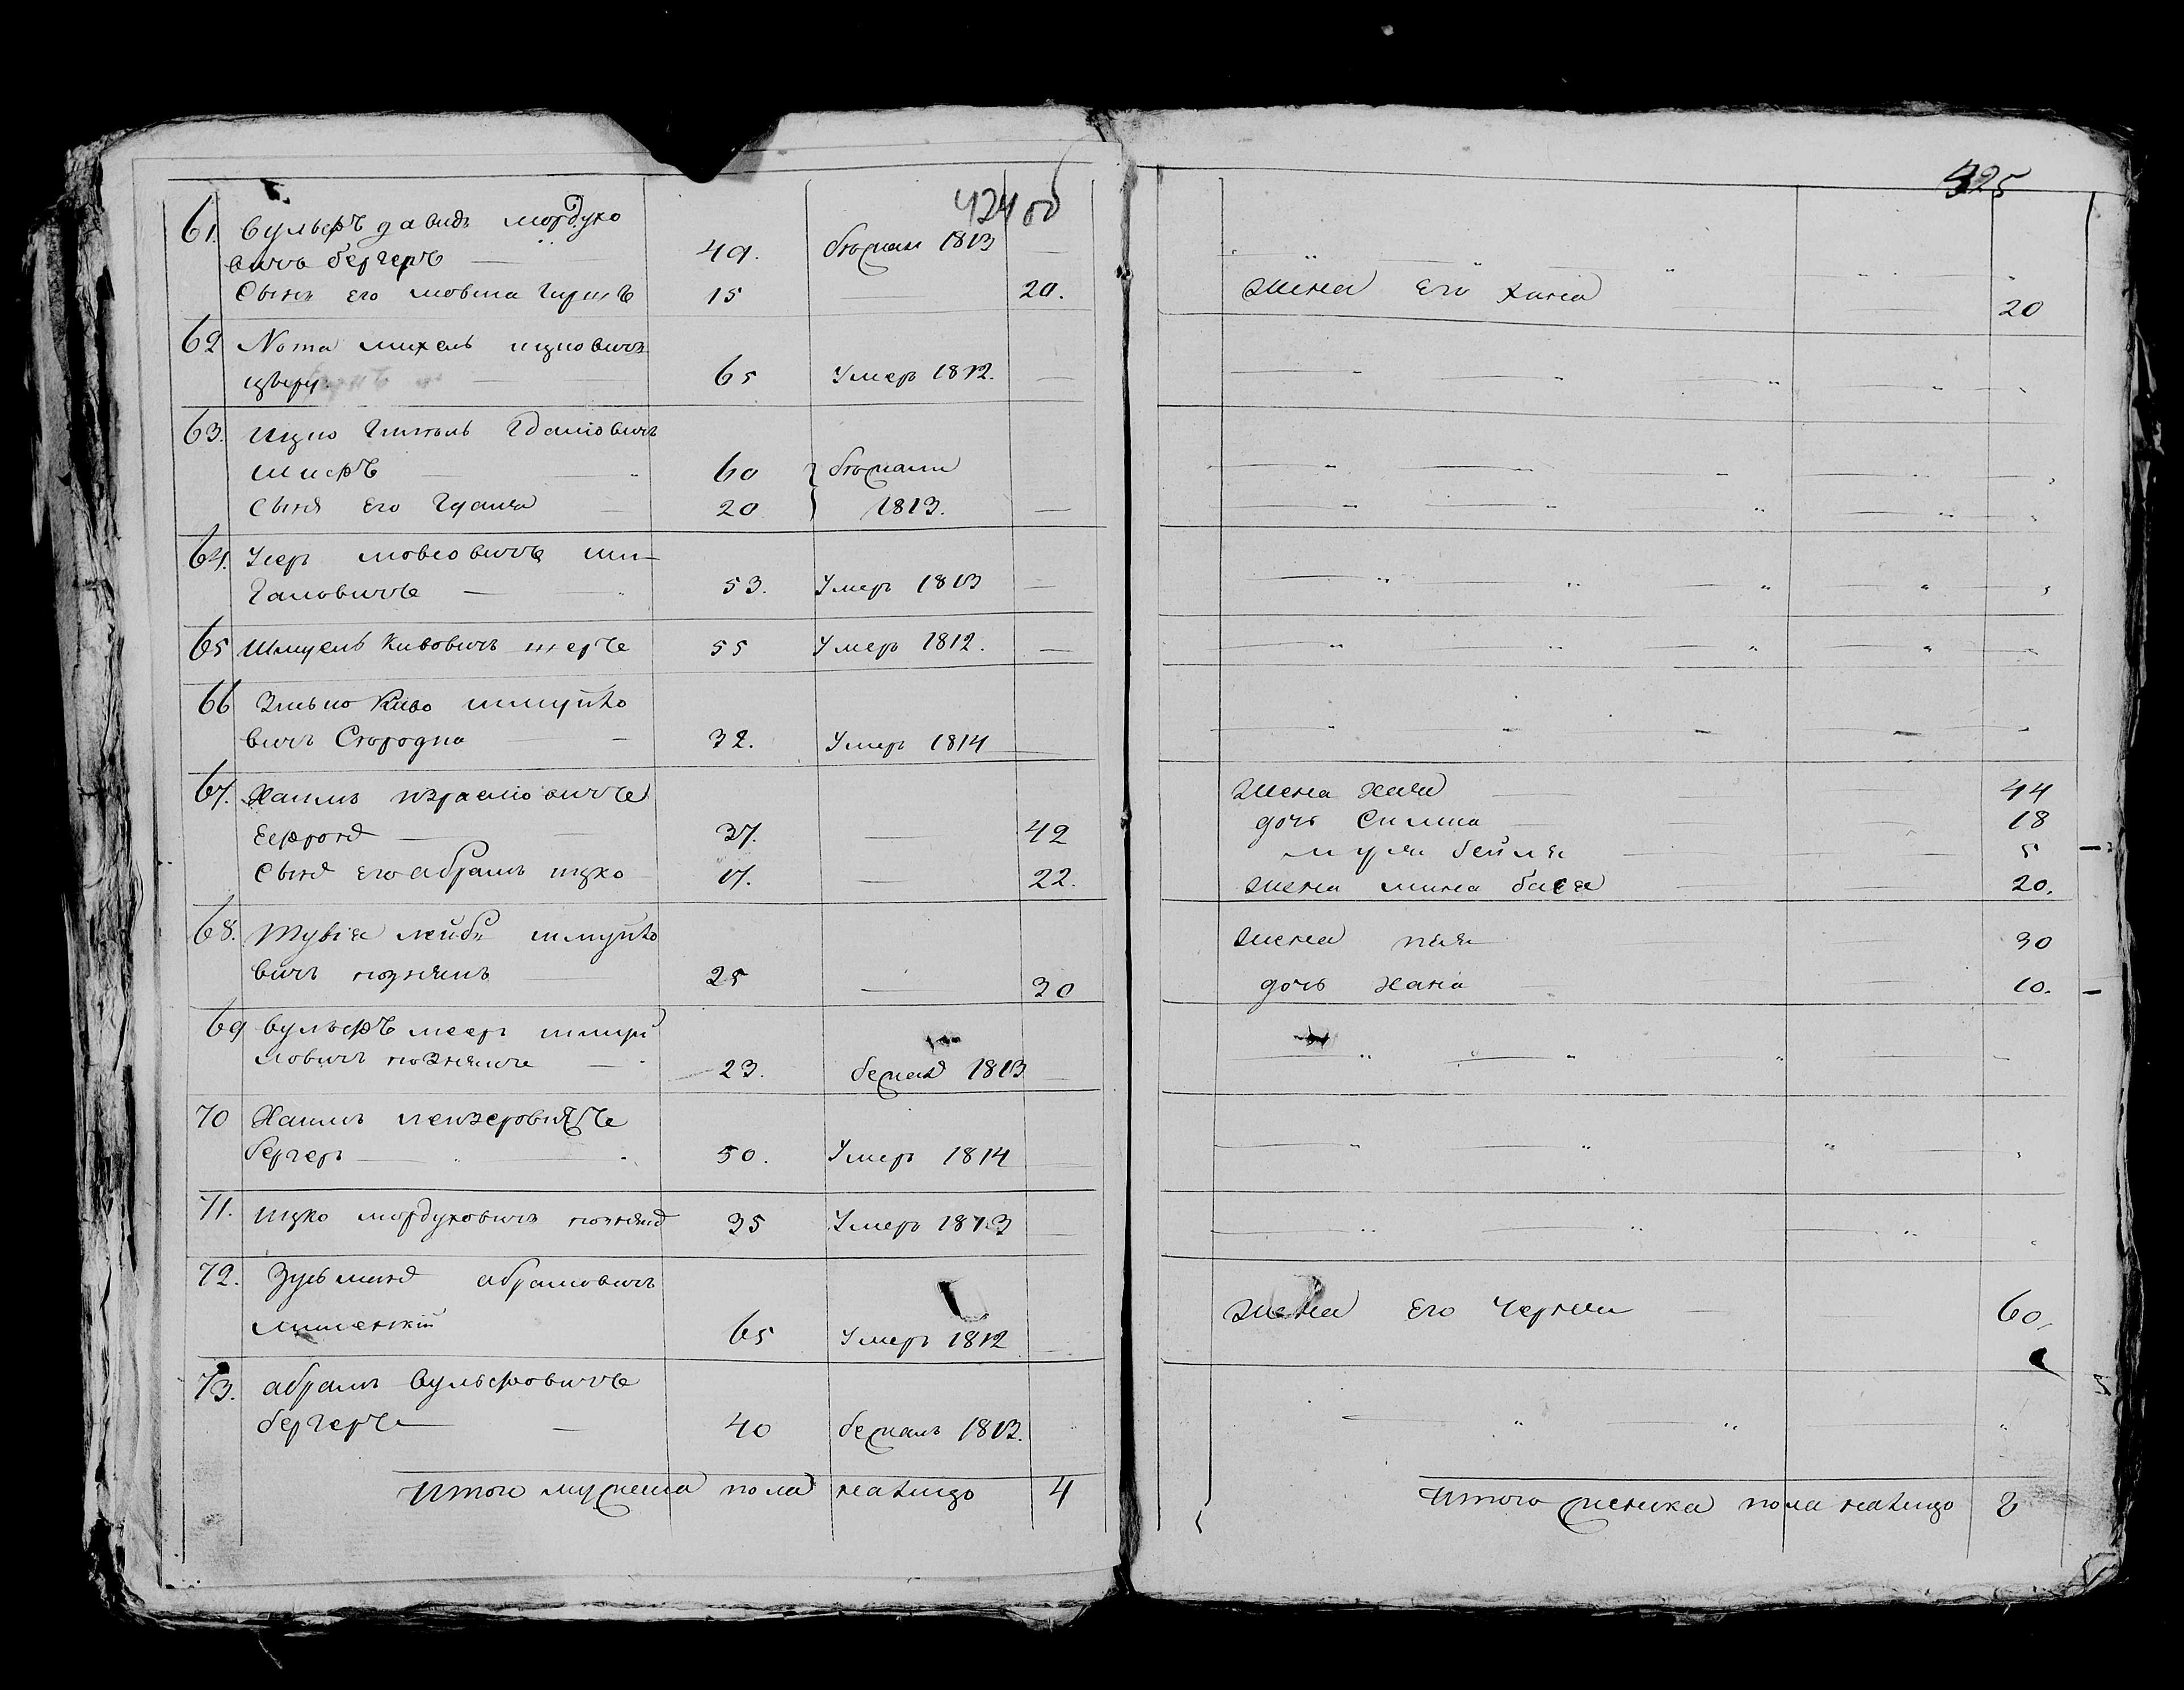 424 об
61. Вульфъ давидъ мордухо
вичъ бергеръ 49. бѣжали 1813 —
Сынъ его мовша гиршъ 15 — 20.
62 Нота михель ицковичъ
65 Умеръ 1812. —
63. Ицко Гдалiовичъ
60 бѣжали
Сынъ его Гдаля 20 1813. —
64. Усеръ мовсовичъ ши-
гановичъ 53. Умеръ 1813 —
65 Шмуель Кивовичъ шеръ 55 Умеръ 1812. —
66 Зилько Киво шмуйло
вичъ Стародна 32. Умеръ 1814
67. Хаимъ изралiовичъ
Ефронъ 37. — 42
Сынъ его абрамъ ицко 17. — 22.
68. Тувiя лейба шмуйло
вичъ познякъ 25 — 30
69 Вульфъ мееръ шмуй
ловичъ познякъ 23. бежалъ 1813 —
70 Хаимъ лейзеровичъ
бергеръ 50. Умеръ 1814
71. ицко мордуховичъ познякъ 35 Умеръ 1813
72. Зусьманъ абрамовичъ
65 Умеръ 1812
73. абрамъ Вульфовичъ
бергеръ 40 бежалъ 1813.
Итого мужеска пола налицо 4
425
жена его хана 20
жена хая 44
дочь Симша 18
бейля 5
жена мина бася 20.
жена 30
дочь хана 10.
жена его Черна 60.
Итого женска пола налицо 8